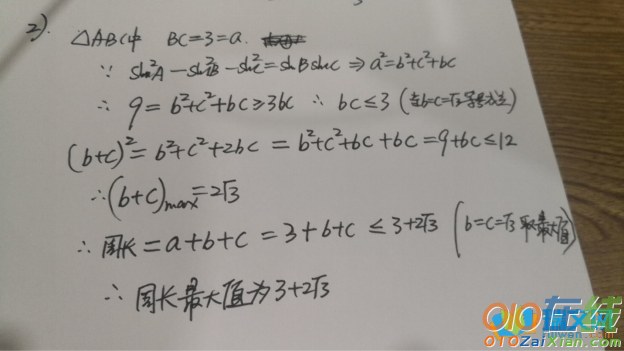 2).
△ABC中 BC=3=a.
∵ sin²A-sin²B-sin²C=sinBsinC ⇒ a²=b²+c²+bc
∴ 9=b²+c²+bc≥3bc ∴ bc≤3 (当b=c=√3等号成立)
(b+c)²=b²+c²+2bc=b²+c²+bc+bc=9+bc≤12
∴(b+c)max=2√3
∴ 周长=a+b+c=3+b+c≤3+2√3 (b=c=√3取最大值)
∴ 周长最大值为3+2√3
010在线
010ZaiXian.com